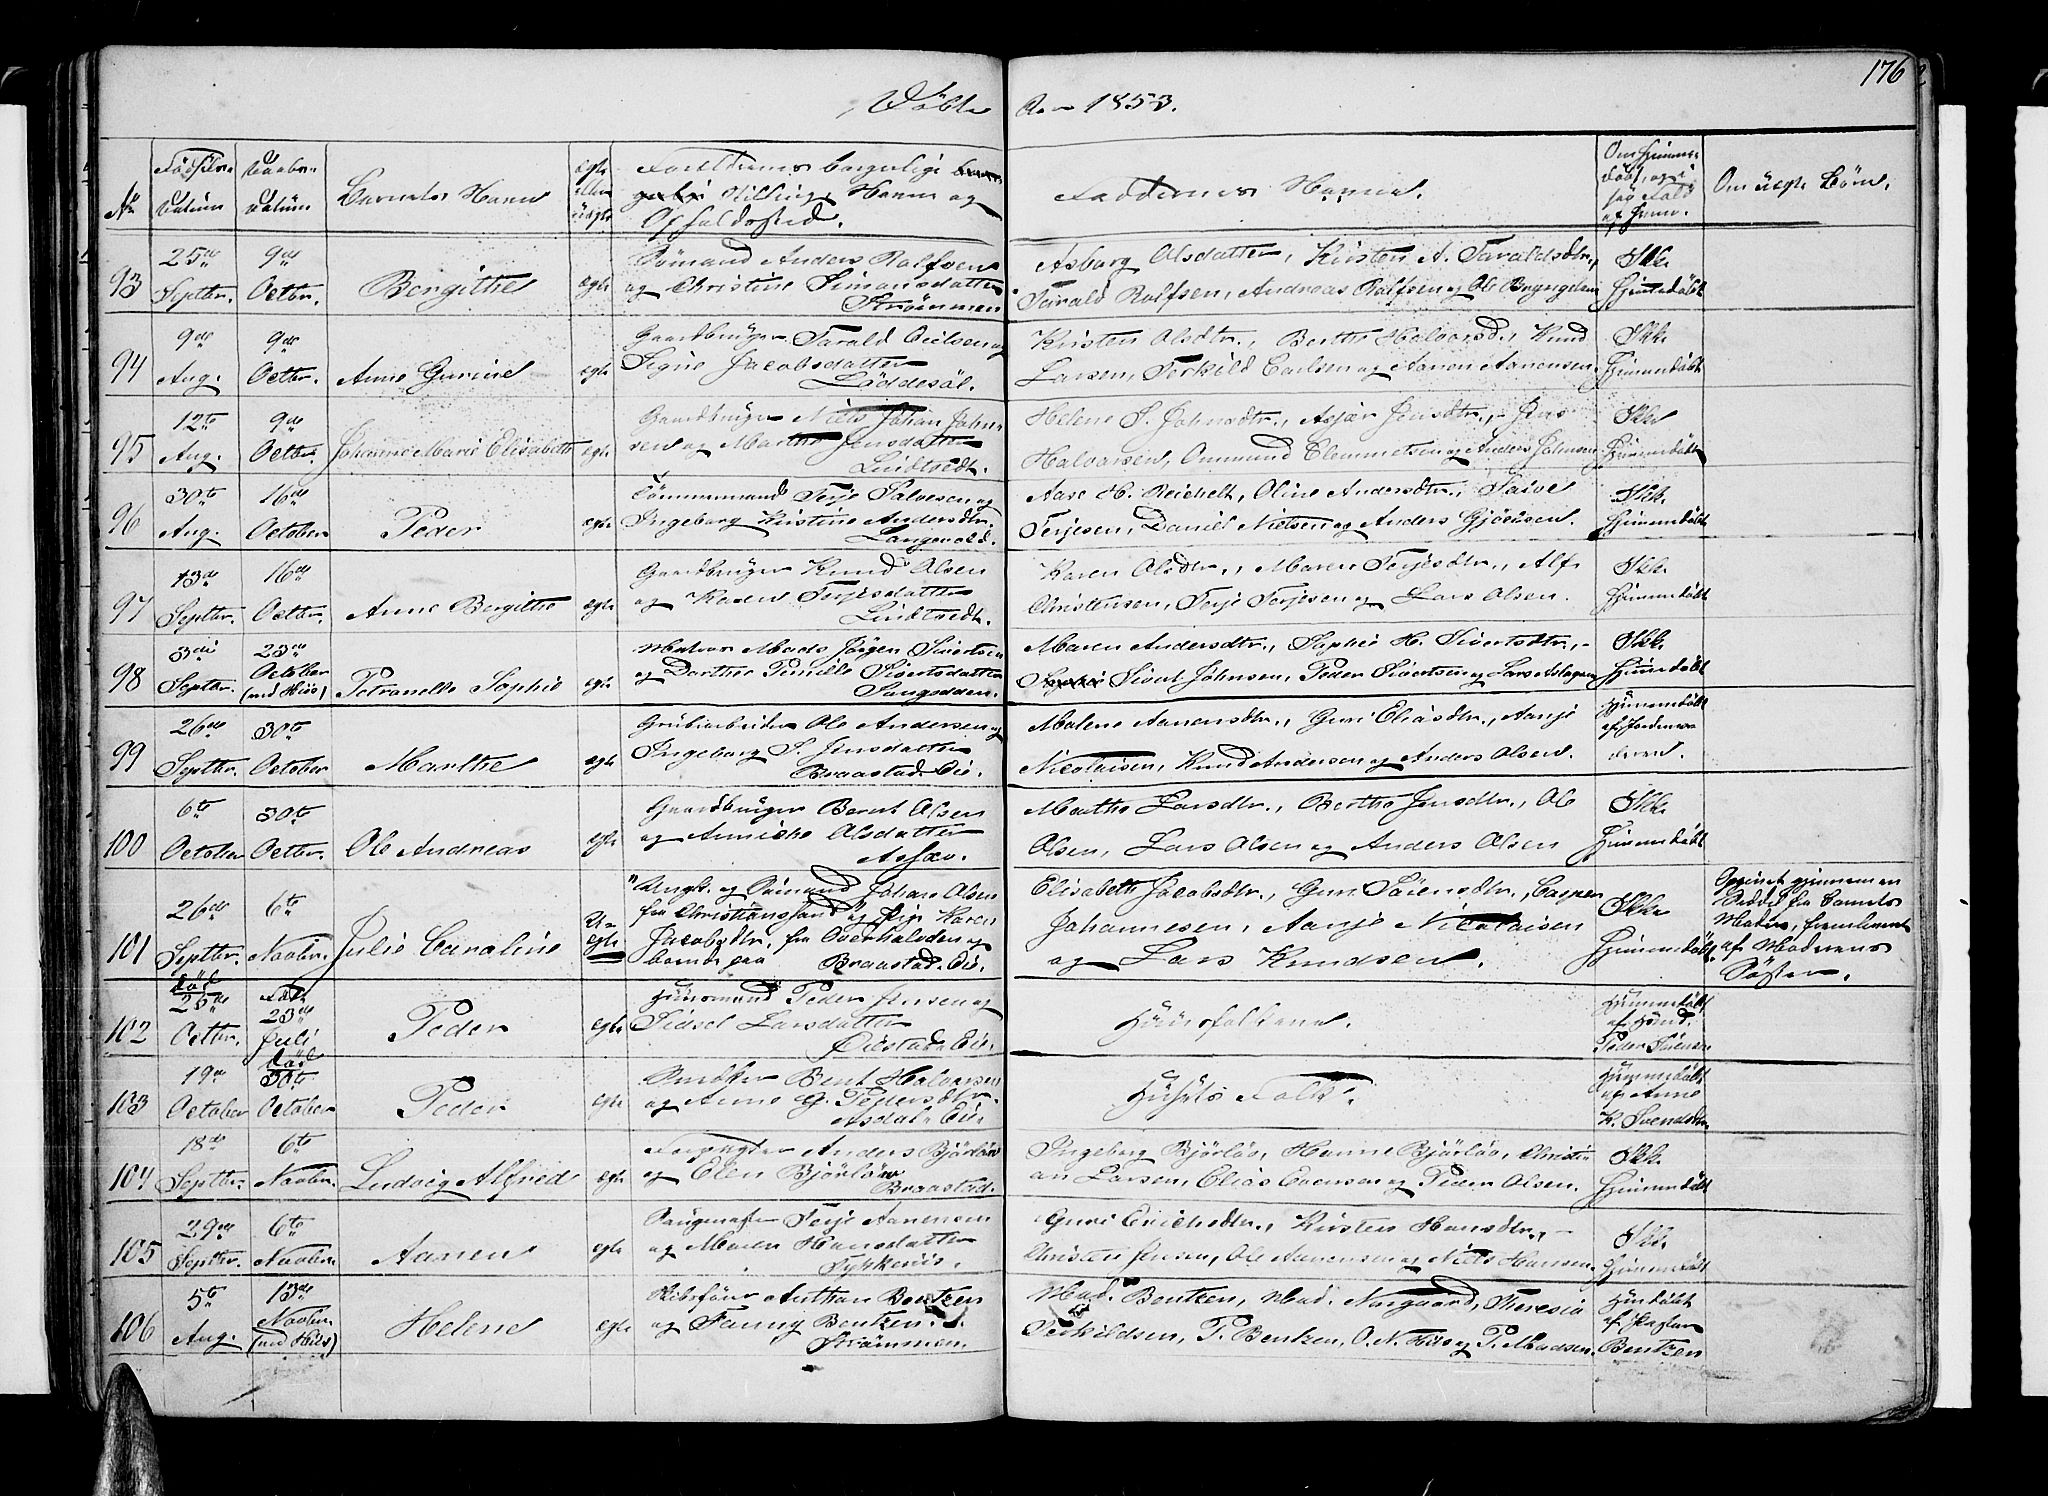 176
Döbte
Aar 1853.
No
Födsels-
Datum
Daabs-
Datum
Barnets Navn
ægte
eller
uægte
Forældrenes borgerlige
Stilling, Navn og
Opholdssted.
Faddernes Navne.
Om Hjemme-
döbt, og i
saa Fald
af hvem.
Om uægte Börn.
93
25de
Septbr.
9de
Octbr.
Bergitte
ægte
Sömand Anders Rolfsen
og Christine Simonsdatter
Strömmen
Asborg Olsdatter, Kirsten A. Taraldsdtr.,
Tarald Rolfsen, Andreas Rolfsen og Ole Bryngelsen
Ikke
Hjemmedöbt
94
9de
Aug.
9de
Octbr.
Anne Gurine
ægte
Gaardbruger Tarald
Signe Jacobsdatter
Löddesöl.
Kirsten Olsdtr., Berthe Halvorsd., Knud
Larsen, Terkild Carlsen og Aanon Aanonsen
Ikke
Hjemmedöbt
95
12te
Aug.
9de
Octbr.
Johanne Marie Elisabeth
ægte
Gaardbruger Niels Johan John-
sen og Marthe Jensdatter
Lindtvedt.
Helene S. Johnsdtr., Asjær Jensdtr., Jens
Halvorsen, Ommund Clemmetsen og Anders Johnsen
Ikke
Hjemmedöbt
96
30te
Aug.
16de
October
Peder
ægte
Tömmermand Terje Salvesen og
Ingeborg Kirstine Andersdtr.
Langevold.
Aase H. Reichelt, Oline Andersdtr.,
Terjesen, Daniel Nielsen og Anders Gjörusen.
Ikke
Hjemmedöbt
97
13de
Septbr.
16de
Octbr.
Anne Bergitte
ægte
Gaardbruger Knud Olsen
og Karen Terjesdatter
Lindtvedt.
Karen Olsdtr., Maren Terjesdtr., Alf
Christensen, Terje Terjesen og Lars Olsen.
Ikke
Hjemmedöbt
98
3die
Septbr.
23de
October
(ved Hisö)
Petronelle Sophie
ægte
Matros Mads Jörgen Sivertsen
og Dorthe Pernille Sivertsdatter
Sangodden.
Maren Andersdtr., Sophie H. Sivertsdtr.,
Sivert Johnsen, Peder Sivertsen og Lars Aslagsen
Ikke
Hjemmedöbt
99
26de
Septbr.
30te
October
Marthe
ægte
Grubearbeider Ole Andersen og
Ingeborg S. Jensdatter
Braastad Eie.
Malene Aanensdtr., Guri Eliasdtr., Aanje
Nicolaisen, Knud Andersen og Anders Olsen.
Hjemmedöbt
af Jordemo-
deren.
100
6te
October
30te
Octbr.
Ole Andreas
ægte
Gaardbruger Bernt Olsen
og Anniche Olsdatter
Marthe Larsdtr., Berthe Jensdtr., Ole
Olsen, Lars Olsen og Anders Olsen
Ikke
Hjemmedöbt
101
26de
Septbr.
6te
Novbr.
Julie Caroline
U-
ægte
Ungk. og Sömand Johan Olsen
fra Christianssand og Pige Karen
Jacobsdtr. fra Overhalvden og
Braastad Eie.
Elisabeth Jacobsdtr., Guri Sörensdtr., Casper
Johannesen, Aanje Nicolaisen
og Lars Knudsen.
Ikke
Hjemmedöbt
Opgivet gjennem en
Seddel fra Barnets
Moder, fremleveret
af Moderens
Söster.
102
död
25de
Octbr.
Föd
23de
Juli
Peder
ægte
Huusmand Peder Jensen og
Sidsel Larsdatter
Öiestad Eie.
Huusfolkene.
Hjemmedöbt
af
Peder
103
19de
October
död
30te
October
Peder
ægte
Bent Halvorsen
og Anne G. Pedersdtr.
Asdal Eie.
Husets Folk.
Hjemmedöbt
af Anne
K. Svendsdtr.
104
18de
Septbr.
6te
Novbr.
Ludvig Alfred
ægte
Forpagter Anders Björlöv
og Elen Björlöv
Braastad.
Ingeborg Björlöv, Hanne Björlöv, Christi-
an Larsen, Elias Evensen og Peder Olsen.
Ikke
Hjemmedöbt
105
29de
Septbr.
6te
Novbr.
Aanen
ægte
Saugmester Terje Aanensen
og Maren Hansdatter
Guri Erichsdtr., Kirsten Hansdtr.,
Christen Jensen, Ole Aanensen og Niels Hansen.
Ikke
Hjemmedöbt
106
5te
Aug.
13de
Novbr.
(ved Hisö)
Helene
ægte
Skibsförer Anthon Bentzen
og Fanny Bentzen.
Strömmen.
Mad. Bentzen, Mad. Norgaard, Theresia
Terkildsen, P. Bentzen, O. N. Hös og P. Madsen.
Hjemdöbt
af Pastor
Bentzen